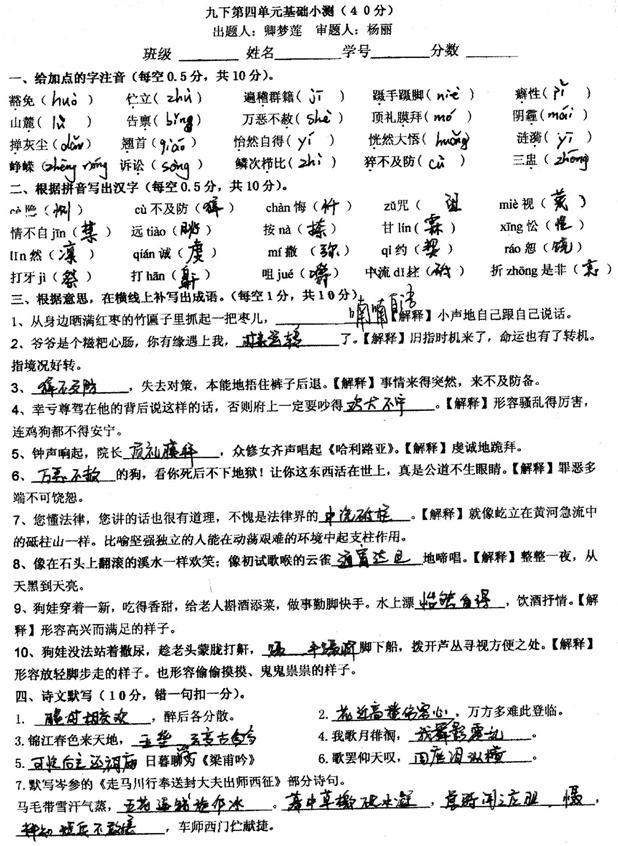 九下第四单元基础小测(40分)
出题人:卿梦莲 审题人:杨丽
班级 姓名 学号 分数
一、给加点的字注音(每空0.5分,共10分)。
豁免(huò) 伫立(zhù) 遍稽群籍(jī) 蹑手蹑脚(niè) 癖性(pǐ)
山麓(lù) 告禀(bǐng) 万恶不赦(shè) 顶礼膜拜(mó) 阴霾(mái)
掸灰尘(dǎn) 翘首(qiáo) 怡然自得(yí) 恍然大悟(huǎng) 涟漪(yī)
峥嵘(zhēng róng) 诉讼(sòng) 鳞次栉比(zhì) 猝不及防(cù) 三盅(zhōng)
二、根据拼音写出汉字(每空0.5分,共10分)。
(恻) cù不及防(猝) chàn悔(忏) zǔ咒(诅) miè视(蔑)
情不自jīn(禁) 远tiào(眺) 按nà(捺) 甘lín(霖) xīng忪(惺)
lǐn然(凛) qián诚(虔) mí撒(弥) qì约(契) ráo恕(饶)
打牙jì(祭) 打hān(鼾) 咀jué(嚼) 中流dǐ柱(砥) 折zhōng是非(衷)
三、根据意思,在横线上补写出成语。(每空1分,共10分)
1、从身边晒满红枣的竹匾子里抓起一把枣儿,喃喃自语【解释】小声地自己跟自己说话。
2、爷爷是个糍粑心肠,你有缘遇上我,时来运转了。【解释】旧指时机来了,命运也有了转机。
指境况好转。
3、猝不及防,失去对策,本能地捂住裤子后退。【解释】事情来得突然,来不及防备。
4、幸亏尊驾在他的背后说这样的话,否则府上一定要吵得犬不宁。【解释】形容骚乱得厉害,
连鸡狗都不得安宁。
5、钟声响起,院长顶礼膜拜,众修女齐声唱起《哈利路亚》。【解释】虔诚地跪拜。
6、万恶不赦的狗,看你死后不下地狱!让你这东西活在世上,真是公道不生眼睛。【解释】罪恶多
端不可饶恕。
7、您懂法律,您讲的话也很有道理,不愧是法律界的中流砥柱。【解释】就像屹立在黄河急流中
的砥柱山一样。比喻坚强独立的人能在动荡艰难的环境中起支柱作用。
8、像在石头上翻滚的溪水一样欢笑;像初试歌喉的云雀通宵达旦地啼唱。【解释】整整一夜,从
天黑到天亮。
9、狗娃穿着一新,吃得香甜,给老人斟酒添菜,做事勤脚快手。水上漂怡然自得,饮酒抒情。【解
释】形容高兴而满足的样子。
10、狗娃没法站着撒尿,趁老头蒙胧打鼾,手蹑脚脚下船,拨开芦丛寻视方便之处。【解释】
形容放轻脚步走的样子。也形容偷偷摸摸、鬼鬼祟祟的样子。
四、诗文默写(10分,错一句扣一分)。
1. 醒时相交欢,醉后各分散。 2. 花近高楼伤客心,万方多难此登临。
3.锦江春色来天地,玉垒变古今 4.我歌月徘徊,我舞影零乱。
5. 可怜后主还祠庙 日暮聊为《梁甫吟》 6.歌罢仰天叹,四座泪纵横。
7.默写岑参的《走马川行奉送封大夫出师西征》部分诗句。
马毛带雪汗气蒸,五花连钱旋作冰。幕中草檄砚水凝,虏骑闻之应胆慑,
料知短兵不敢接,车师西门伫献捷。